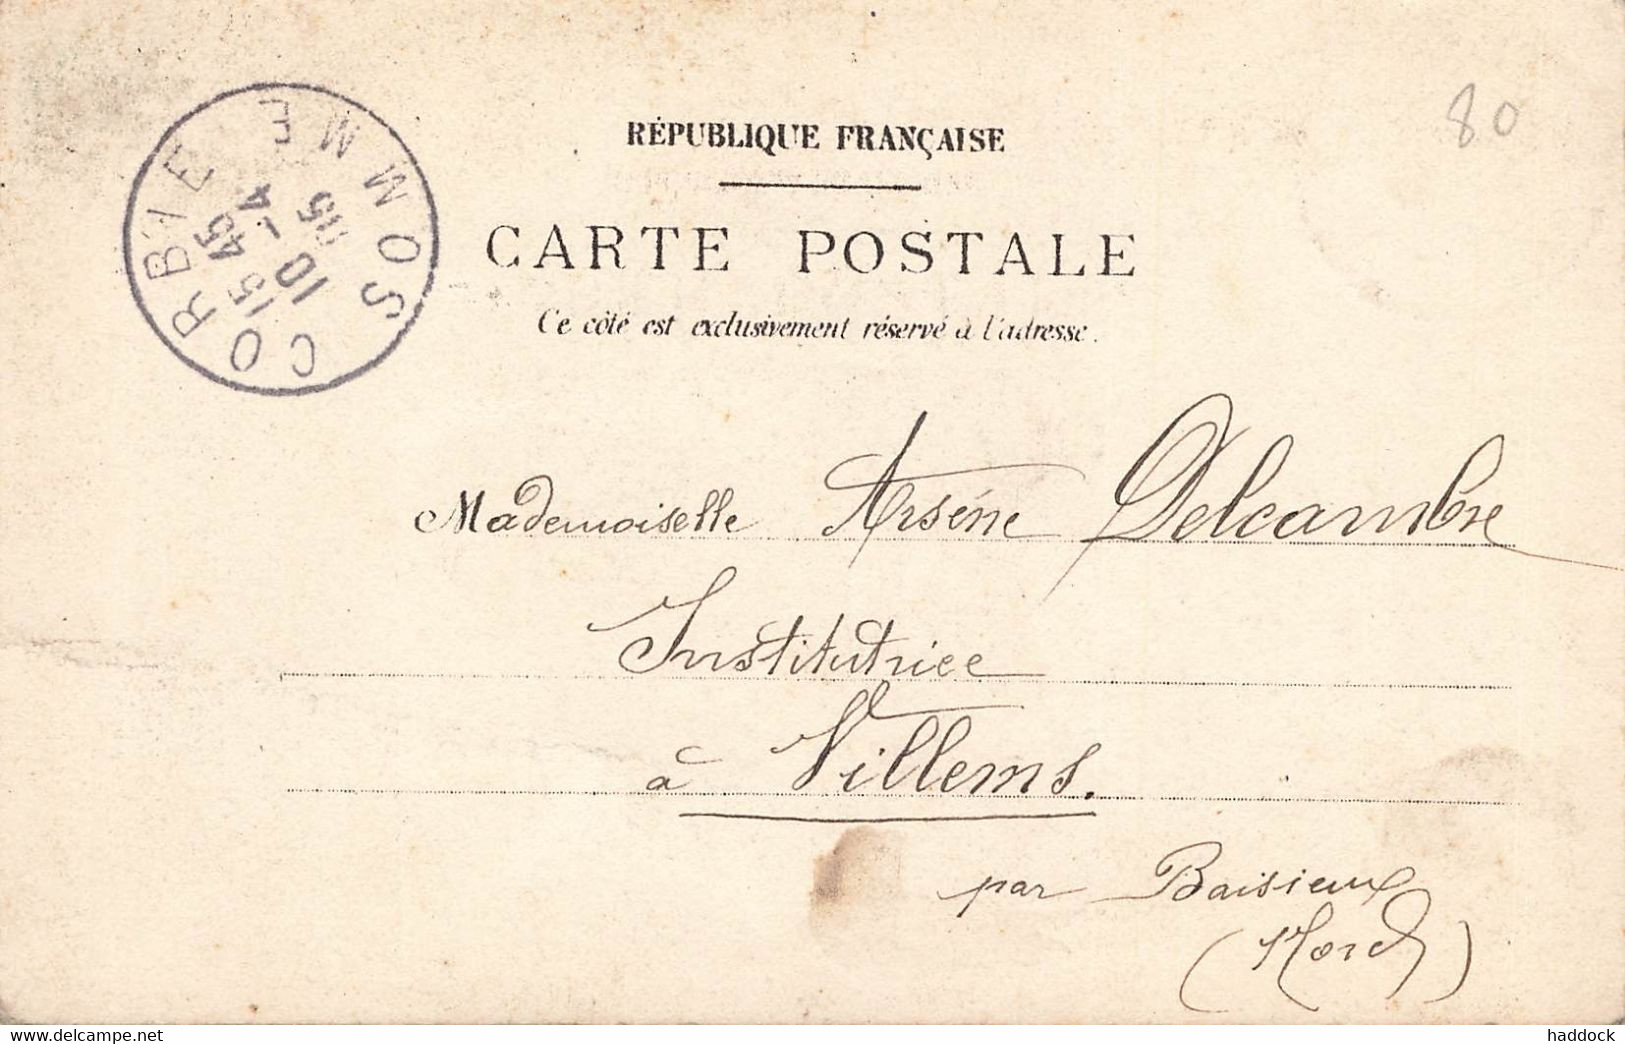 CORBIE
SOMME
15 45
10 - 4
05
80
RÉPUBLIQUE FRANÇAISE
CARTE POSTALE
Ce côté est exclusivement réservé à l'adresse.
Mademoiselle Arsène Delcambre
Institutrice
à Villems.
par Baisieux
(Nord)
www.delcampe.net
haddock